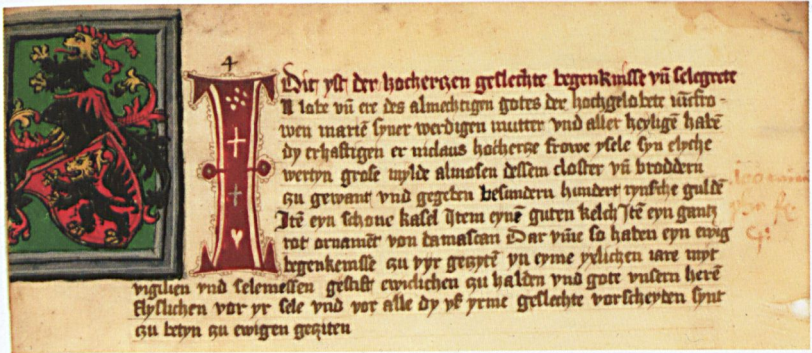 4
Dit yst der hochertzen geslechte begenknisse vn̄ selegrete
In lobe vn̄ ere des almechtigen gotes der hochgelobete iūcfro-
wen marie syner werdigen mutter vnd aller heyligē habē
dy erhaftigen er niclaus hochertze frowe ysele syn elyche
wertyn grose mylde almosen dessem closter vn̄ broddern
zu gewant vnd gegeben besundern hundert rynsche guldē
Jtē eyn schone kasel Jtem eynē guten kelch Jtē eyn gantz
rot ornamēt von damascan Dar vm̄e so haben eyn ewig
begenkenisse zu vyr geczytē yn eyme yczlichen iare myt
vigilien vnd selemessen gestift ewiclichen zu halden vnd gote vnsern herē
flyslichen vor yr sele vnd vor alle dy vß yrme geslechte vorscheyden synt
zu betyn zu ewigen geziten